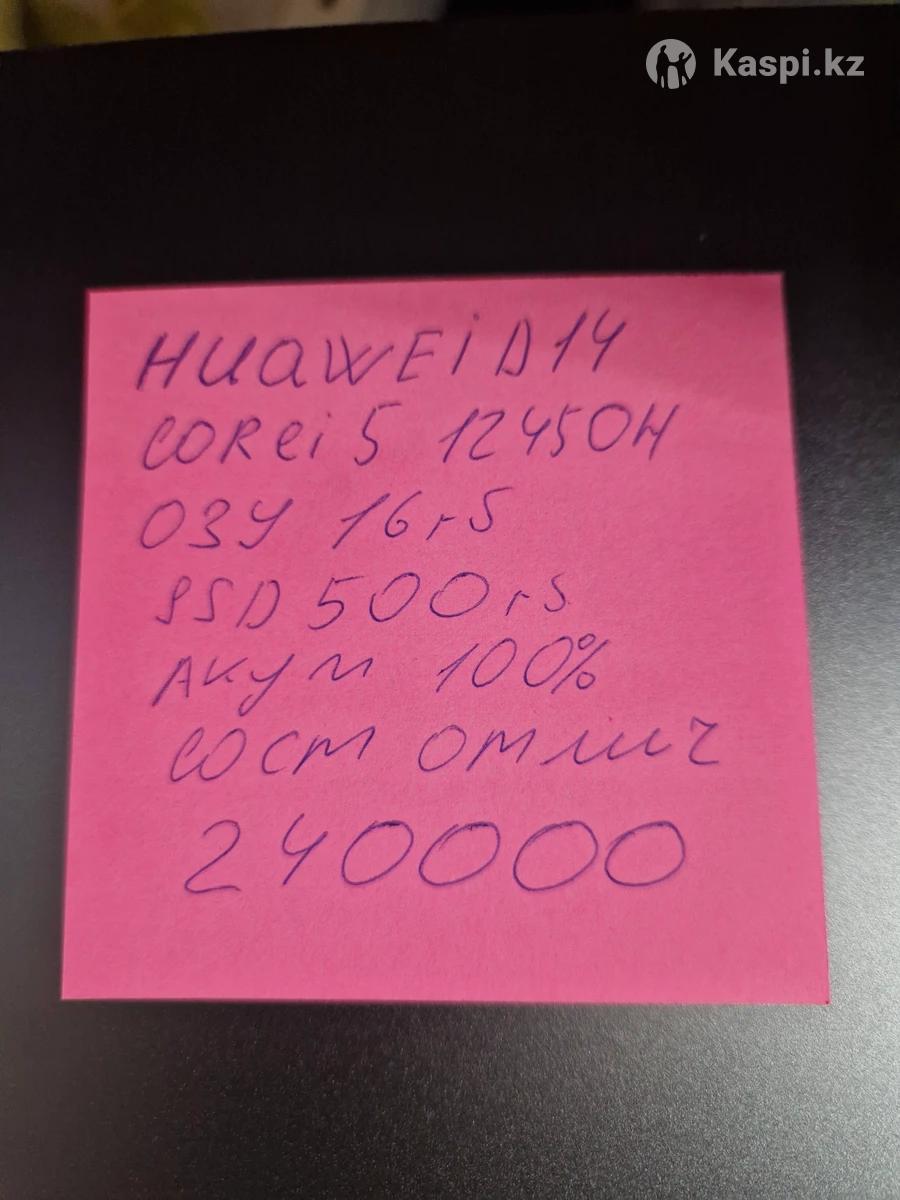 Kaspi.kz
HUAWEi D14
CORei5 12450H
ОЗУ 16гб
SSD 500гб
Акум 100%
сост отлич
240000